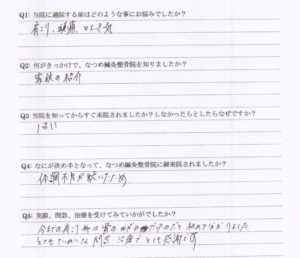 Q1: 当院に通院する前はどのような事にお悩みでしたか?
肩こり、頭痛、吐き気
Q2: 何がきっかけで、なつめ鍼灸整骨院を知りましたか?
家族の紹介
Q3 当院を知ってからすぐ来院されましたか?しなかったらとしたらなぜですか?
はい
Q4: なにが決め手となって、なつめ鍼灸整骨院に御来院されましたか?
体調不良が続いたため
Q5: 実際、問診、治療を受けてみていかがでしたか?
今までの肩こりの原因は骨の
だったのだと初めて分かりました。
とてもていねいな問診、治療でとても感謝です